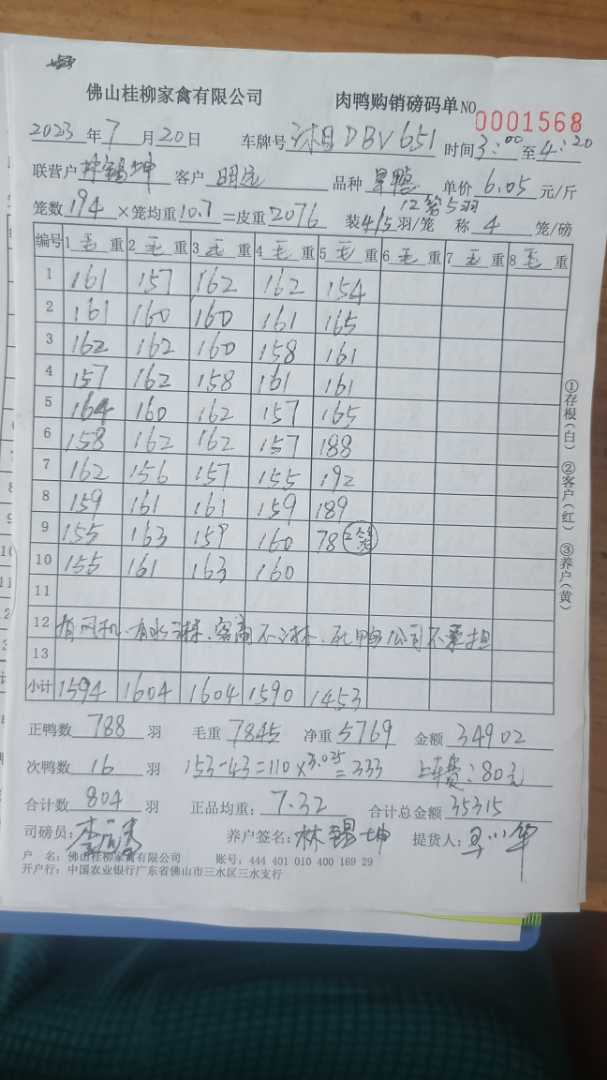 佛山桂柳家禽有限公司 肉鸭购销磅码单 NO 0001568
2023 年 7 月 20 日 车牌号 湘DBV651 时间 3:00 至 4:20
联营户 林锡坤 客户 明远 品种 单价 6.05 元/斤
12笼5羽
笼数 194 ×笼均重 10.7 =皮重 2076 装 4/5 羽/笼 称 4 笼/磅
编号 1 毛 重 2 毛 重 3 毛 重 4 毛 重 5 毛 重 6 毛 重 7 毛 重 8 毛 重
1 161 157 162 162 154
2 161 160 160 161 165
3 162 162 160 158 161
4 157 162 158 161 161
5 164 160 162 157 165
6 158 162 162 157 188
7 162 156 157 155 192
8 159 161 161 159 189
9 155 163 159 160 78 2笼
10 155 161 163 160
11
12 有风机、有水淋、客商不淋、死鸭公司不承担
13
小计 1594 1604 1604 1590 1453
正鸭数 788 羽 毛重 7845 净重 5769 金额 34902
次鸭数 16 羽 153-43=110×3.025=333 上车费:80元
合计数 804 羽 正品均重: 7.32 合计总金额 35315
司磅员: 养户签名: 林锡坤 提货人:
户 名: 佛山桂柳家禽有限公司 账号: 444 401 010 400 169 29
开户行: 中国农业银行广东省佛山市三水区三水支行
①存根(白) ②客户(红) ③养户(黄)